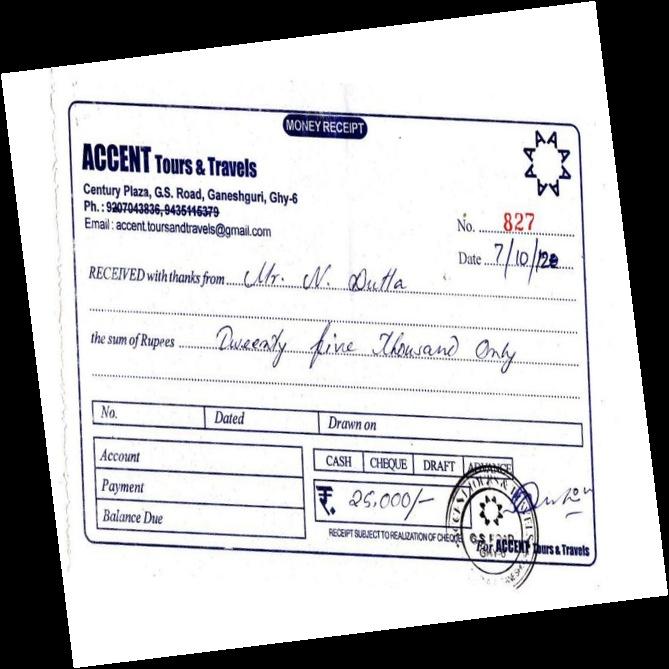 MONEY RECEIPT
ACCENT Tours & Travels
Century Plaza, G.S. Road, Ganeshguri, Ghy-6
Ph. : 9207043836, 9435115379
Email : accent.toursandtravels@gmail.com
No. 827
Date 7/10/20
RECEIVED with thanks from Mr. N. Dutta
the sum of Rupees Tweenty five Thousand Only
No. Dated Drawn on
Account
Payment
Balance Due
CASH CHEQUE DRAFT ADVANCE
₹. 25,000/-
RECEIPT SUBJECT TO REALIZATION OF CHEQUE
G.S. ROAD
GHY-6
For ACCENT Tours & Travels